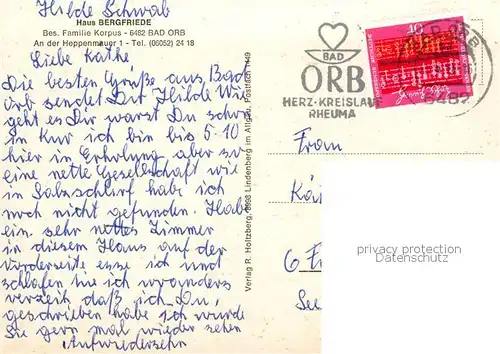 Hilde Schwab
Haus BERGFRIEDE
Bes. Familie Korpus - 6482 BAD ORB
An der Heppenmauer 1 - Tel. (06052) 24 18
Liebe Käthe
Die besten Grüße aus Bad
Orb sendet Dir Hilde Wie
geht es Dir warst Du schon
in Kur ich bin bis 5-10
hier in Erholung aber so
eine nette Gesellschaft wie
in Salzschlirf habe ich
noch nicht gefunden. Habe
ein sehr nettes Zimmer
in diesem Haus auf der
Vorderseite esse ich und
schlafen tue ich woanders
verzeih daß ich Du
geschrieben habe ich würde
Sie gern mal wieder sehen
Aufwiedersehn
Verlag R. Holtzberg, 8998 Lindenberg im Allgäu, Postfach 1149
BAD
ORB
HERZ·KREISLAUF
RHEUMA
6482
Frau
Kä
6 F
See
privacy protection
watermark